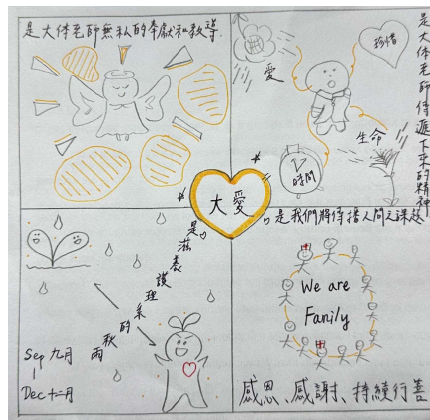 是大体老師無私的奉獻和教導.
珍惜
愛
生命
時間
是大体老師傳遞下來的精神
大愛
是我們將傳播人間之課題
是滋養護理系的秋雨
Sep 九月
Dec 十二月
We are
Fanily
感恩、感謝、持續行善